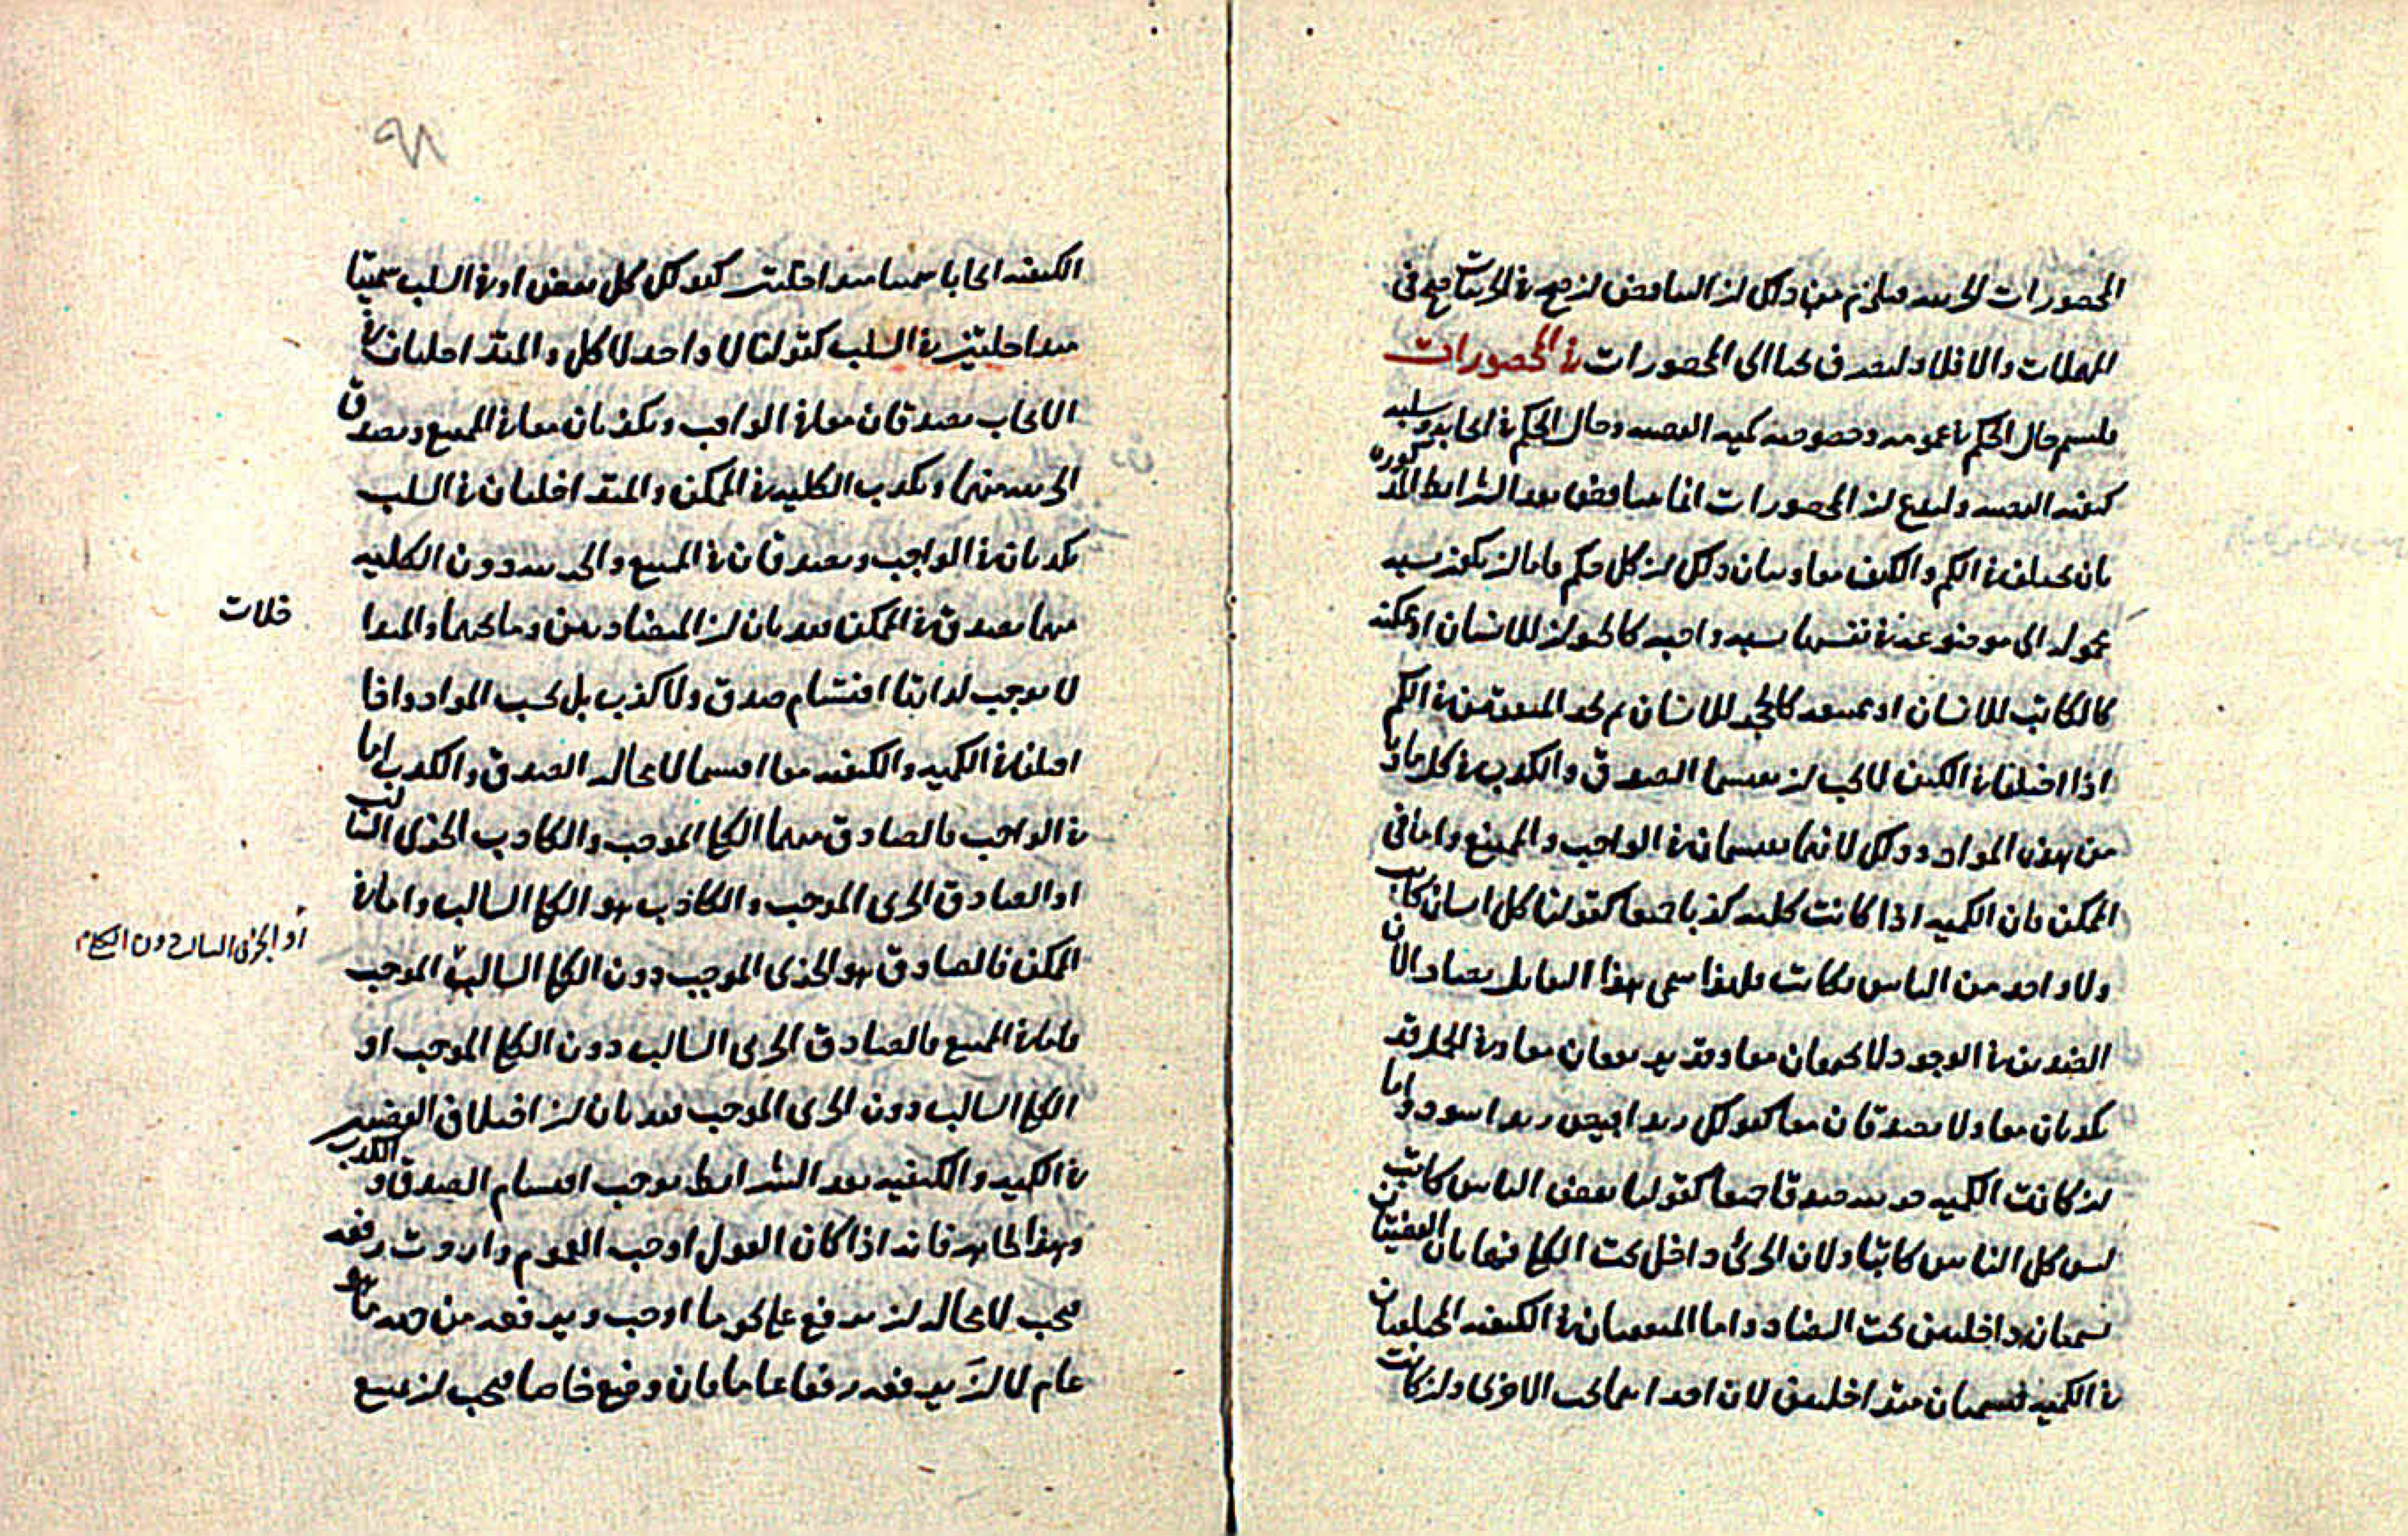 المحصورات الجزئيه فيلزم من ذلك ان التناقض ان صح في الجزئيات صح في
المهملات والا فلا ولنصرف بحثنا الى المحصورات في المحصورات
فلنسم حال الحكم في عمومه وخصوصه كميه القضيه وحال الحكم في ايجابه وسلبه
كيفيه القضيه ولنضع ان المحصورات انما تتناقض بعد الشرايط المذكوره
بان تختلف في الكم والكيف معا وبيان ذلك ان كل حكم فاما ان يكون نسبه
محموله الى موضوعه في نفسها نسبه واجبه كالحيوان للانسان او ممكنه
كالكاتب للانسان او ممتنعه كالحجر للانسان ثم نجد المتفقتين في الكم
اذا اختلفا في الكيف لا يجب ان يقتسما الصدق والكذب في كل ماده
من هذه المواد وذلك لانهما يقتسمان في الواجب والممتنع واما في
الممكن فان الكميه اذا كانت كليه كذبا جميعا كقولنا كل انسان كاتب
ولا واحد من الناس بكاتب فلهذا سمي هذا التقابل تضادا لان
الضدين في الوجود لا يجتمعان معا وقد يرتفعان معا وفي الجمله قد
يكذبان معا ولا يصدقان معا كقولك زيد ابيض زيد اسود واما
ان كانت الكميه جزئيه صدقا جميعا كقولنا بعض الناس كاتب
ليس كل الناس كاتبا ولان الجزئي داخل تحت الكلي فهاتان القضيتان
تسميان داخلتين تحت التضاد واما المتفقتان في الكيفيه المختلفتان
في الكميه فتسميان متداخلتين لان احداهما تحت الاخرى وان كانت
الكيفيه ايجابا سميتا متداخلتين كقولك كل بعض او في السلب سميتا
متداخلتين في السلب كقولنا لا واحد لا كل والمتداخلتان في
الايجاب يصدقان معا في الواجب ويكذبان معا في الممتنع ويصدق
الجزئيه منهما ويكذب الكليه في الممكن والمتداخلتان في السلب
يكذبان في الواجب ويصدقان في الممتنع والجزئيه دون الكليه
منهما يصدق في الممكن فقد بان ان المتضادتين وما تحتهما والمتدا
خلات
لا يوجب لذاتها اقتسام صدق ولا كذب بل بحسب المواد واذا
اختلفا في الكميه والكيفيه معا اقتسما لا محاله الصدق والكذب اما
في الواجب فالصادق منهما الكلي الموجب والكاذب الجزئي السالب
او الصادق الجزئي الموجب والكاذب هو الكلي السالب واما في
الممكن فالصادق هو الجزئي الموجب دون الكلي السالب الموجب
او الجزئي السالب دون الكلي
فاما في الممتنع فالصادق الجزئي السالب دون الكلي الموجب او
الكلي السالب دون الجزئي الموجب فقد بان ان اختلاف القضيتين
في الكميه والكيفيه بعد الشرايط يوجب اقتسام الصدق والكذب
وهذا ظاهر فانه اذا كان القول اوجب العموم واردت رفعه
فيجب لا محاله ان يرفع على نحو ما اوجب ويرفعه من جهه ما هو
عام لا ان يرفعه رفعا عاما فان وضع خاصا فيجب ان يمنع